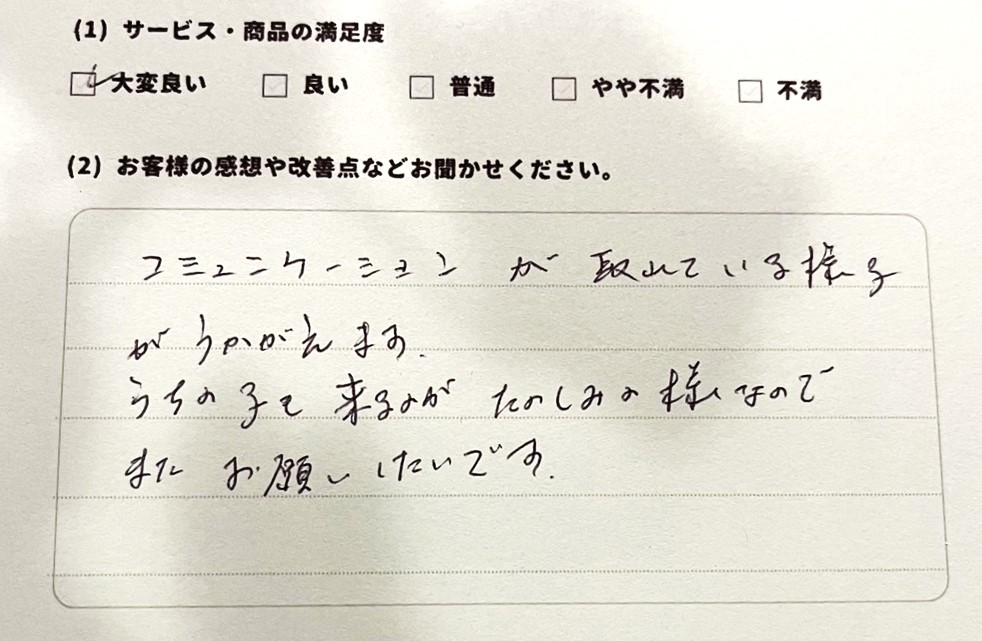 (1) サービス・商品の満足度
大変良い 良い 普通 やや不満 不満
(2) お客様の感想や改善点などお聞かせください。
コミュニケーションが取れている様子
がうかがえます.
うちの子も来るのがたのしみの様なので
またお願いしたいです.